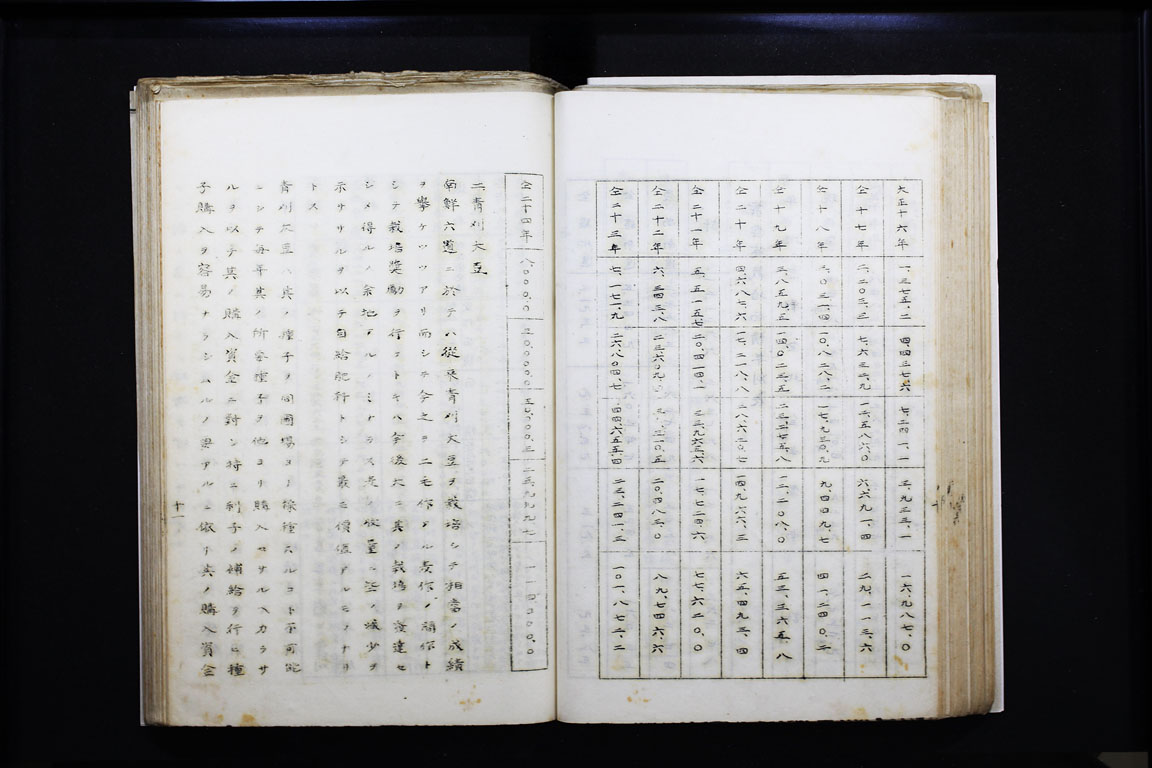 大正十六年 一、三七五、二 四、四三七、六 七、二四一、一 三、九三三、一 一六、九八七、〇
仝十七年 二、二〇三、三 七、六三三、九 一二、五八六、〇 六、六九一、四 二九、一一三、六
仝十八年 三、〇三一、四 一〇、八二八、二 一七、九三〇、九 九、四四九、七 四一、二四〇、二
仝十九年 三、八五九、五 一四、〇二三、五 二三、二七五、八 一二、二〇八、〇 五三、三六五、八
仝二十年 四、六八七、六 一七、二一八、八 二八、六二〇、七 一四、九六六、三 六五、四九三、四
仝二十一年 五、五一五、七 二〇、四一四、一 三三、九六五、六 一七、七二四、六 七七、六二〇、〇
仝二十二年 六、三四三、八 二三、六〇九、 三九、三一〇、五 二〇、四八二、〇 八九、七四六、六
仝二十三年 七、一七一、九 二六、八〇四、七 四四、六五五、四 二三、二四一、五 一〇一、八七三、二
仝二十四年 八、〇〇〇、〇 三〇、〇〇〇、〇 五〇、〇〇〇、三 二五、九九九、七 一一四、〇〇〇、〇
二青刈大豆
南鮮六道ニ於テハ從來青刈大豆ヲ栽培シテ相當ノ成績
ヲ擧ケツツアリ而シテ今之ヲ二毛作タル麦作ノ間作ト
シテ栽培奬勵ヲ行フトキハ今後大ニ其ノ栽培ヲ發達セ
シメ得ルノ余地アルノミナラス是レ收量ニ些ノ減少ヲ
示ササルヲ以テ自給肥料トシテ最モ價値アルモノナリ
トス
青刈大豆ハ其ノ種子ヲ同圃場ヨリ採種スルコト不可能
ニシテ毎年其ノ所要種子ヲ他ヨリ購入セサルヘカラサ
ルヲ以テ其ノ購入資金ニ對シ特ニ利子ノ補給ヲ行ヒ種
子購入ヲ容易ナラシムルノ要アルニ依リ其ノ購入資金
十一